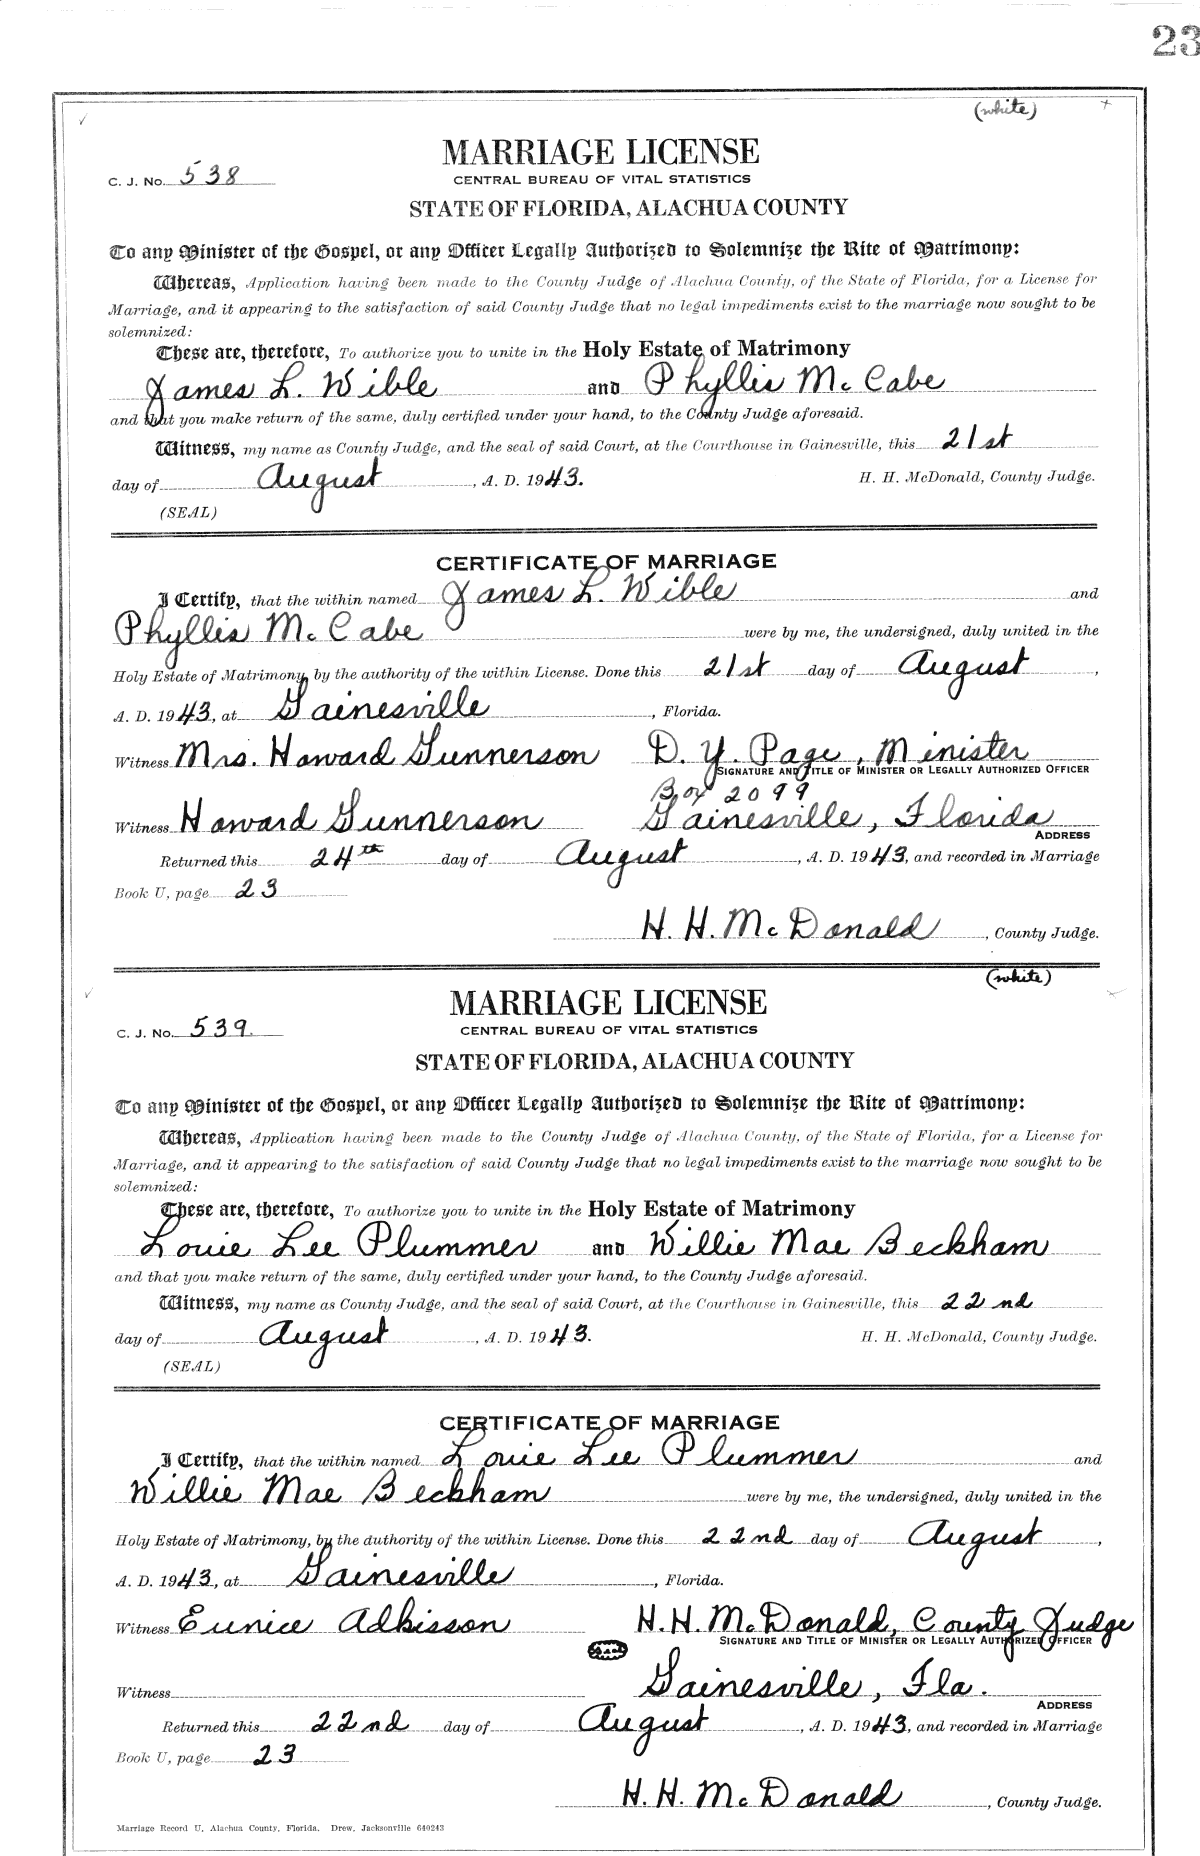 23
(white)
MARRIAGE LICENSE
C. J. No. 538
CENTRAL BUREAU OF VITAL STATISTICS
STATE OF FLORIDA, ALACHUA COUNTY
To any Minister of the Gospel, or any Officer Legally Authorized to Solemnize the Rite of Matrimony:
Whereas, Application having been made to the County Judge of Alachua County, of the State of Florida, for a License for
Marriage, and it appearing to the satisfaction of said County Judge that no legal impediments exist to the marriage now sought to be
solemnized:
These are, therefore, To authorize you to unite in the Holy Estate of Matrimony
James L. Wible and Phyllis McCabe
and that you make return of the same, duly certified under your hand, to the County Judge aforesaid.
Witness, my name as County Judge, and the seal of said Court, at the Courthouse in Gainesville, this 21st
day of August, A. D. 1943. H. H. McDonald, County Judge.
(SEAL)
CERTIFICATE OF MARRIAGE
I Certify, that the within named James L. Wible and
Phyllis McCabe were by me, the undersigned, duly united in the
Holy Estate of Matrimony, by the authority of the within License. Done this 21st day of August,
A. D. 1943, at Gainesville, Florida.
Witness Mrs. Howard Gunnerson D. Y. Page, Minister
SIGNATURE AND TITLE OF MINISTER OR LEGALLY AUTHORIZED OFFICER
Box 2099
Witness Howard Gunnerson Gainesville, Florida
ADDRESS
Returned this 24th day of August, A. D. 1943, and recorded in Marriage
Book U, page 23
H. H. McDonald, County Judge.
(white)
MARRIAGE LICENSE
C. J. No. 539.
CENTRAL BUREAU OF VITAL STATISTICS
STATE OF FLORIDA, ALACHUA COUNTY
To any Minister of the Gospel, or any Officer Legally Authorized to Solemnize the Rite of Matrimony:
Whereas, Application having been made to the County Judge of Alachua County, of the State of Florida, for a License for
Marriage, and it appearing to the satisfaction of said County Judge that no legal impediments exist to the marriage now sought to be
solemnized:
These are, therefore, To authorize you to unite in the Holy Estate of Matrimony
Louie Lee Plummer and Willie Mae Beckham
and that you make return of the same, duly certified under your hand, to the County Judge aforesaid.
Witness, my name as County Judge, and the seal of said Court, at the Courthouse in Gainesville, this 22nd
day of August, A. D. 1943. H. H. McDonald, County Judge.
(SEAL)
CERTIFICATE OF MARRIAGE
I Certify, that the within named Louie Lee Plummer and
Willie Mae Beckham were by me, the undersigned, duly united in the
Holy Estate of Matrimony, by the authority of the within License. Done this 22nd day of August,
A. D. 1943, at Gainesville, Florida.
Witness Eunice Adkisson H. H. McDonald, County Judge
SIGNATURE AND TITLE OF MINISTER OR LEGALLY AUTHORIZED OFFICER
Witness Gainesville, Fla.
ADDRESS
Returned this 22nd day of August, A. D. 1943, and recorded in Marriage
Book U, page 23
H. H. McDonald, County Judge.
Marriage Record U, Alachua County, Florida. Drew, Jacksonville 640243